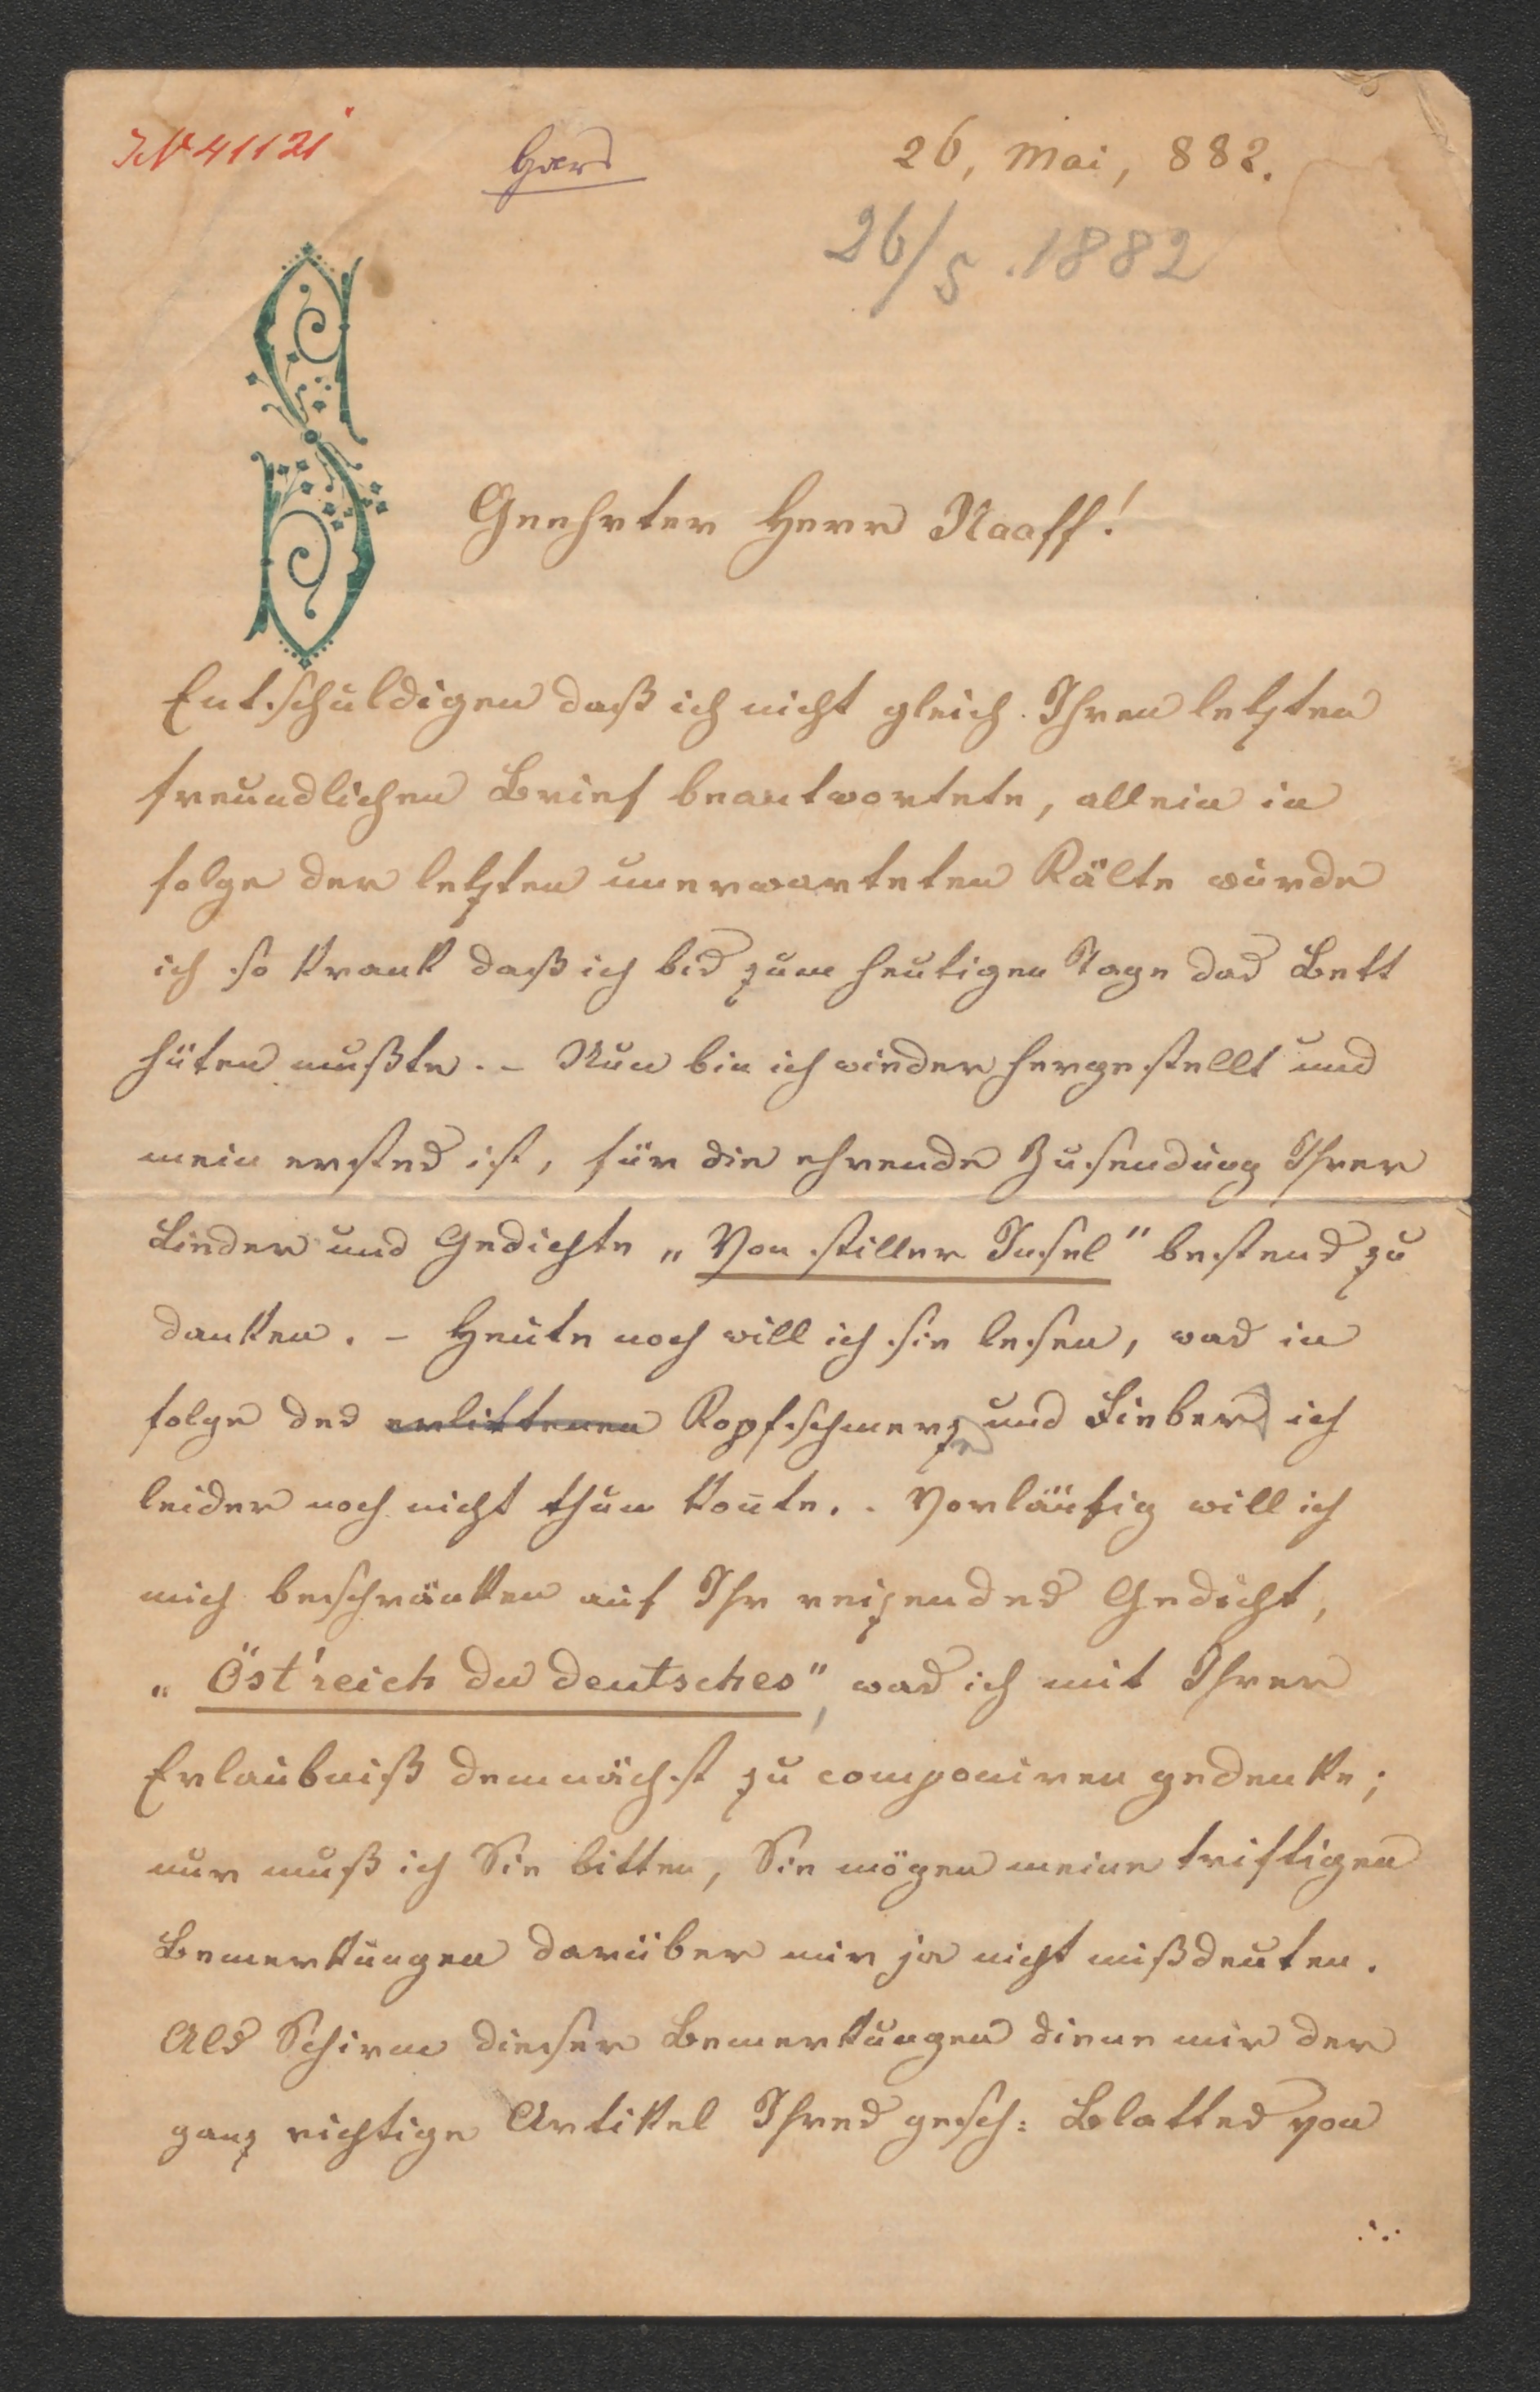 IN 41121
26, Mai, 882.
26/5. 1882
Geehrter Herr Naaff!
Entschuldigen daß ich nicht gleich Ihren letzten
freundlichen Brief beantwortete, allein in
folge der letzten unerwarteten Kälte wurde
ich so krank daß ich bis zum heutigen Tage das Bett
hüten mußte. – Nun bin ich wieder hergestellt und
mein erstes ist, für die ehrende Zusendung Ihrer
Lieder und Gedichte „Von stiller Insel" bestens zu
danken. – Heute noch will ich sie lesen, was in
folge des erlittenen Kopfschmerz und Fiebers ich
leider noch nicht thun kon̄te. . Vorläufig will ich
mich beschränken auf Ihr reizendes Gedicht,
„Öst'reich du deutsches", was ich mit Ihrer
Erlaubniß demnächst zu componiren gedenke;
nur muß ich Sie bitten, Sie mögen meine triftigen
Bemerkungen darüber mir ja nicht mißdeuten.
Als Schirm dieser Bemerkungen diene mir der
ganz richtige Artikel Ihres gesch: Blattes von